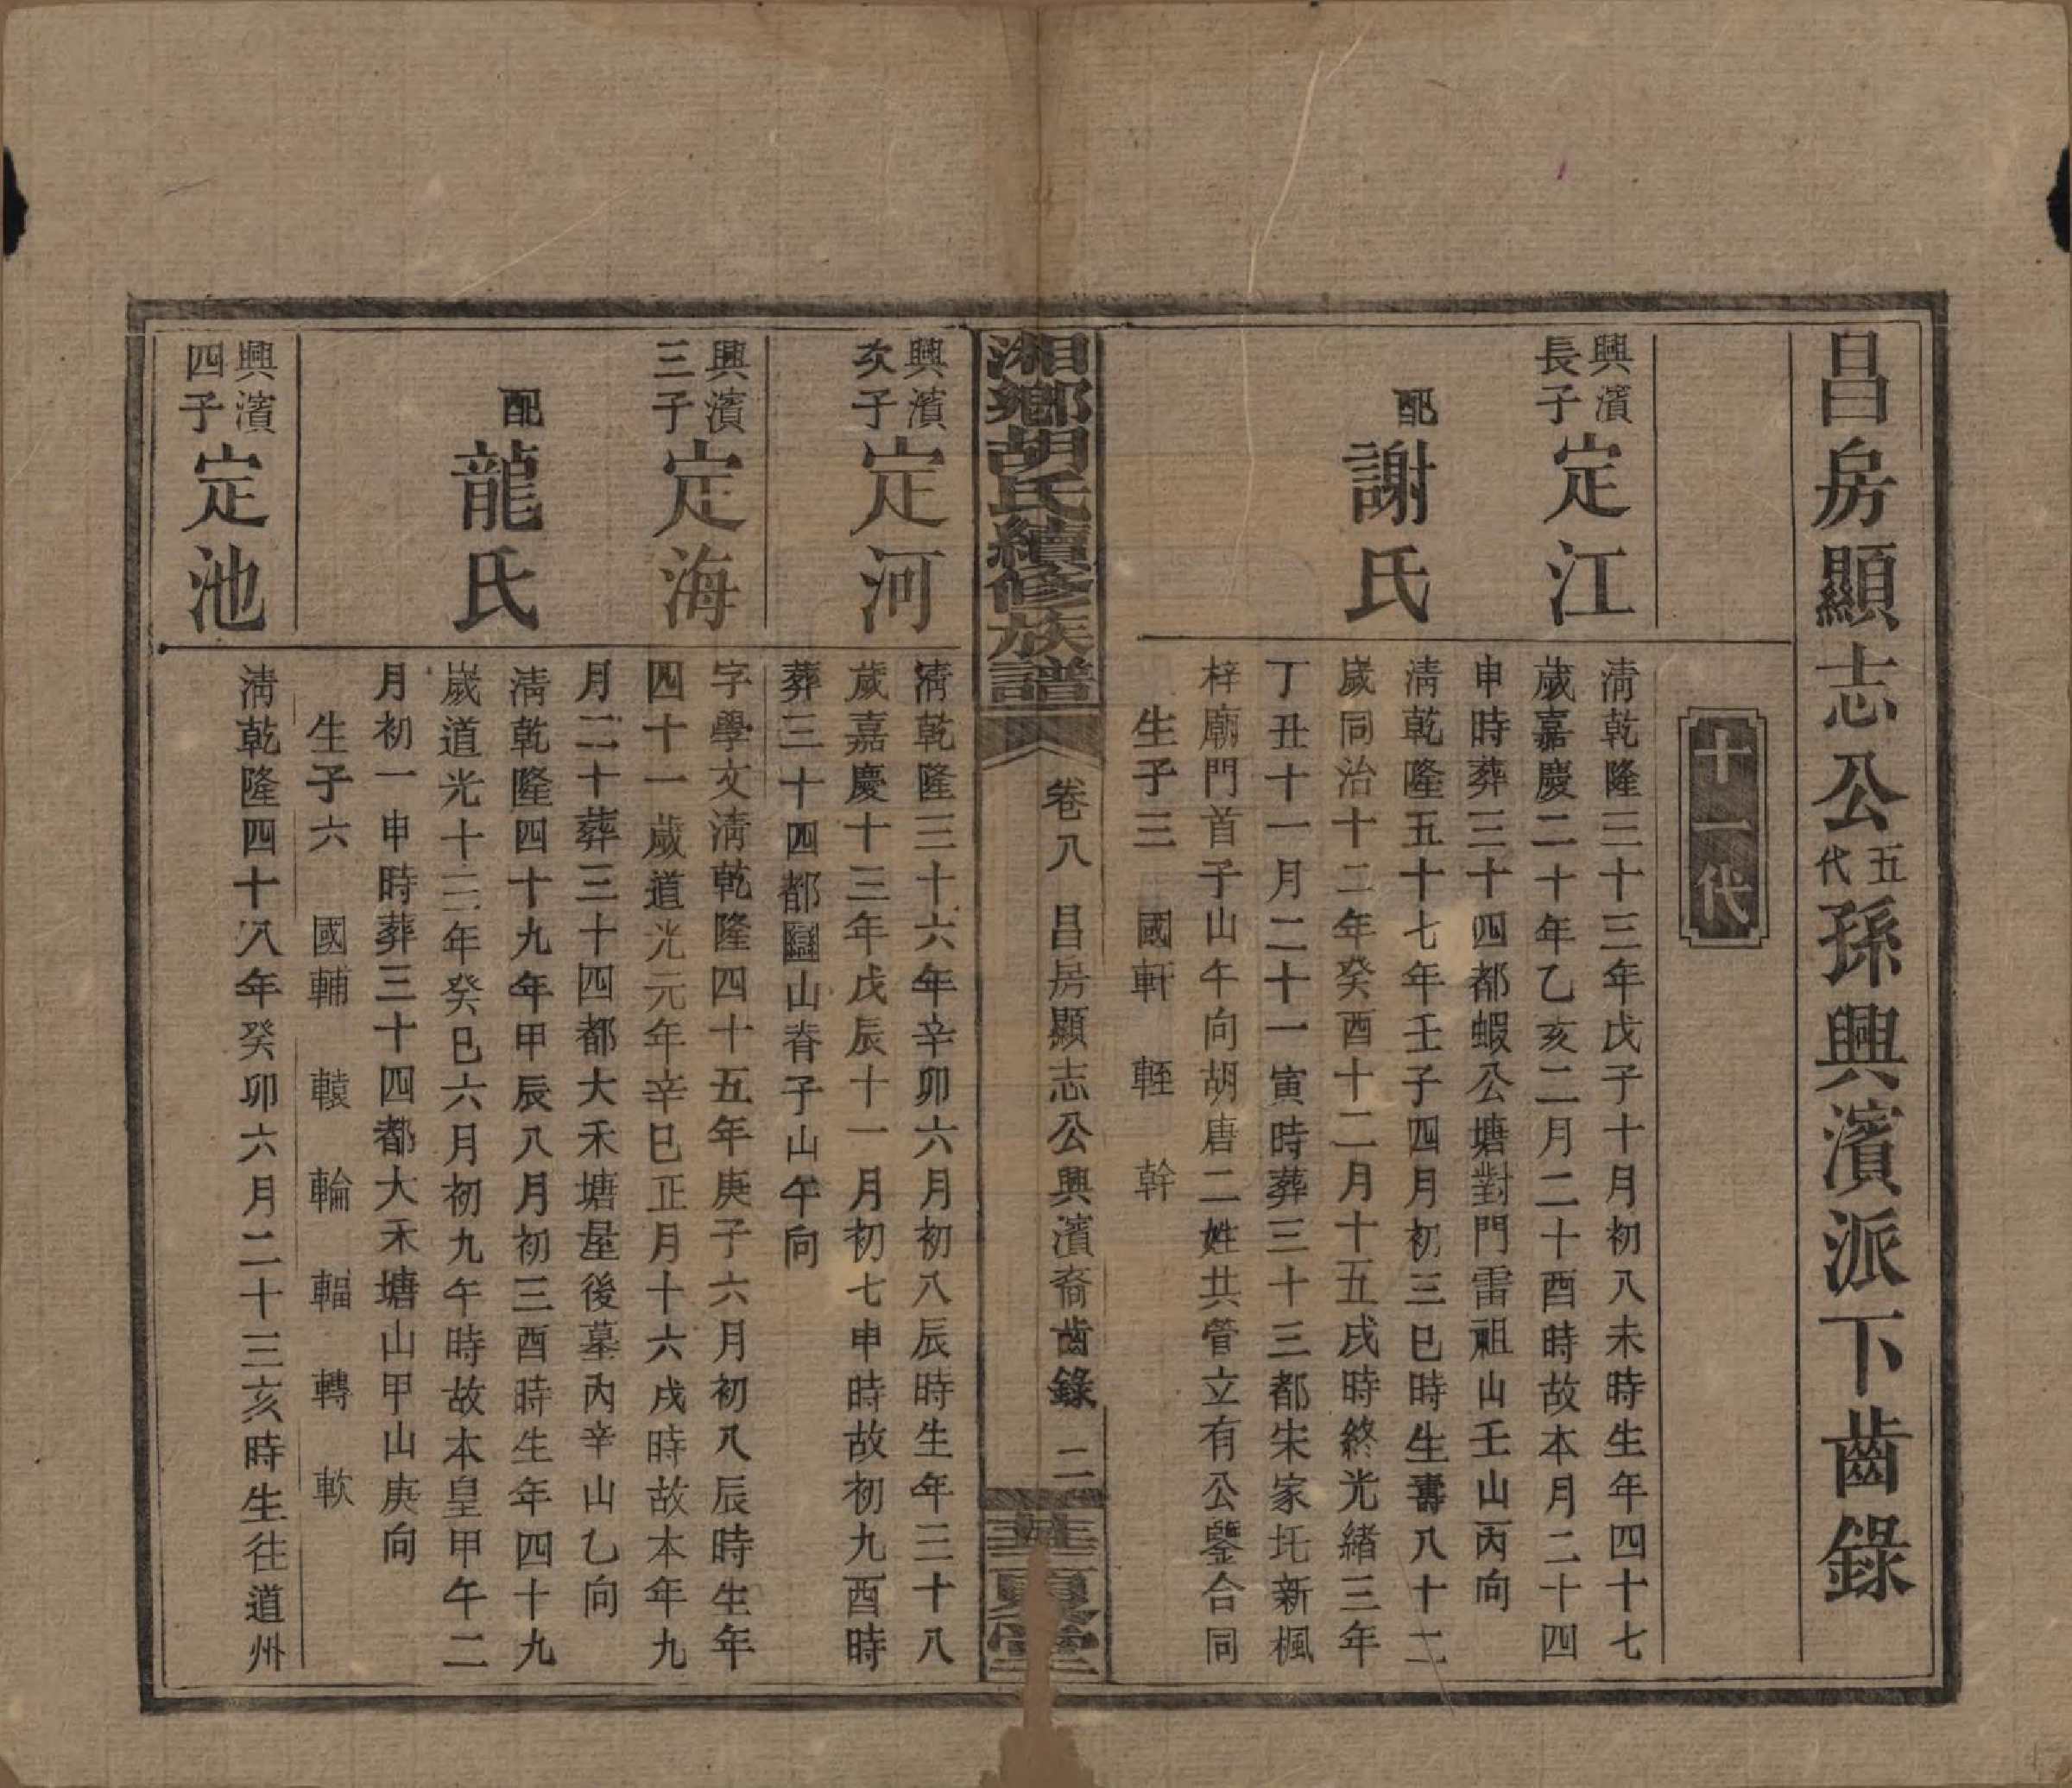 昌房顯志公五代孫興濱派下齒錄
十一代
興濱長子定江
清乾隆三十三年戊子十月初八未時生年四十七
歲嘉慶二十年乙亥二月二十酉時故本月二十四
申時葬三十四都蝦公塘對門雷祖山壬山丙向
配謝氏
清乾隆五十七年壬子四月初三巳時生壽八十二
歲同治十二年癸酉十二月十五戌時終光緒三年
丁丑十一月二十一寅時葬三十三都朱家圫新楓
梓廟門首子山午向胡唐二姓共管立有公鑒合同
生子三 國軒 輊 幹
湘鄉胡氏續修族譜
卷八 昌房顯志公興濱裔齒錄 二
堂
興濱次子定河
清乾隆三十六年辛卯六月初八辰時生年三十八
歲嘉慶十三年戊辰十一月初七申時故初九酉時
葬三十四都山脊子山午向
興濱三子定海
字學文清乾隆四十五年庚子六月初八辰時生年
四十一歲道光元年辛巳正月十六戌時故本年九
月二十葬三十四都大禾塘屋後墓內辛山乙向
配龍氏
清乾隆四十九年甲辰八月初三酉時生年四十九
歲道光十三年癸巳六月初九午時故本皇甲午二
月初一申時葬三十四都大禾塘山甲山庚向
生子六 國輔 轅 輪 輻 轉 軟
興濱四子定池
清乾隆四十八年癸卯六月二十三亥時生往道州